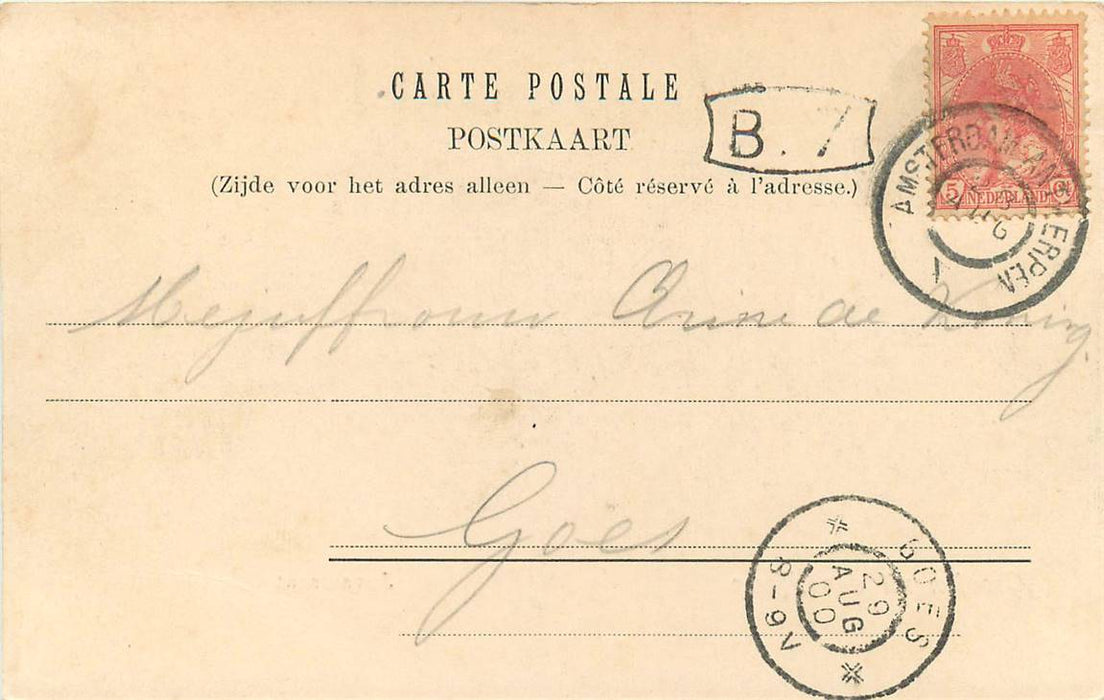 CARTE POSTALE
B. 7
POSTKAART
(Zijde voor het adres alleen — Côté réservé à l'adresse.)
5 NEDERLAND
AMSTERDAM-ANTWERPEN
Mejuffrouw de Koning
Goes
GOES
29
AUG
00
8-9V